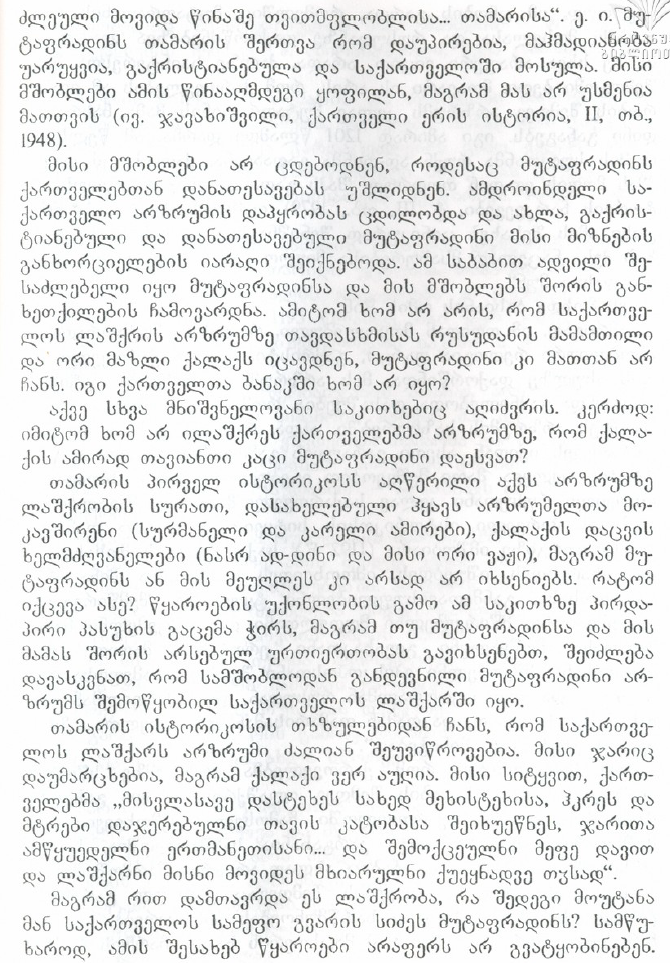 ძლეული მოვიდა წინაშე თვითმფლობლისა... თამარისა“. ე. ი. მუ-
ტაფრადინს თამარის შერთვა რომ დაუპირებია, მაჰმადიანობა
უარუყვია, გაქრისტიანებულა და საქართველოში მოსულა. მისი
მშობლები ამის წინააღმდეგი ყოფილან, მაგრამ მას არ უსმენია
მათთვის (ივ. ჯავახიშვილი, ქართველი ერის ისტორია, II, თბ.,
1948).
მისი მშობლები არ ცდებოდნენ, როდესაც მუტაფრადინს
ქართველებთან დანათესავებას უშლიდნენ. ამდროინდელი სა-
ქართველო არზრუმის დაპყრობას ცდილობდა და ახლა, გაქრის-
ტიანებული და დანათესავებული მუტაფრადინი მისი მიზნების
განხორციელების იარაღი შეიქნებოდა. ამ საბაბით ადვილი შე-
საძლებელი იყო მუტაფრადინსა და მის მშობლებს შორის გან-
ხეთქილების ჩამოვარდნა. ამიტომ ხომ არ არის, რომ საქართვე-
ლოს ლაშქრის არზრუმზე თავდასხმისას რუსუდანის მამამთილი
და ორი მაზლი ქალაქს იცავდნენ, მუტაფრადინი კი მათთან არ
ჩანს. იგი ქართველთა ბანაკში ხომ არ იყო?
აქვე სხვა მნიშვნელოვანი საკითხებიც აღიძვრის. კერძოდ:
იმიტომ ხომ არ ილაშქრეს ქართველებმა არზრუმზე, რომ ქალა-
ქის ამირად თავიანთი კაცი მუტაფრადინი დაესვათ?
თამარის პირველ ისტორიკოსს აღწერილი აქვს არზრუმზე
ლაშქრობის სურათი, დასახელებული ჰყავს არზრუმელთა მო-
კავშირენი (სურმანელი და კარელი ამირები), ქალაქის დაცვის
ხელმძღვანელები (ნასრ ად-დინი და მისი ორი ვაჟი), მაგრამ მუ-
ტაფრადინს ან მის მეუღლეს კი არსად არ იხსენიებს. რატომ
იქცევა ასე? წყაროების უქონლობის გამო ამ საკითხზე პირდა-
პირი პასუხის გაცემა ჭირს, მაგრამ თუ მუტაფრადინსა და მის
მამას შორის არსებულ ურთიერთობას გავიხსენებთ, შეიძლება
დავასკვნათ, რომ სამშობლოდან განდევნილი მუტაფრადინი არ-
ზრუმს შემოწყობილ საქართველოს ლაშქარში იყო.
თამარის ისტორიკოსის თხზულებიდან ჩანს, რომ საქართვე-
ლოს ლაშქარს არზრუმი ძალიან შეუვიწროვებია. მისი ჯარიც
დაუმარცხებია, მაგრამ ქალაქი ვერ აუღია. მისი სიტყვით, ქართ-
ველებმა „მისვლასავე დასტეხეს სახედ მეხისტეხისა, ჰკრეს და
მტრები დაჯერებულნი თავის კატობასა შეიხუეწნეს, ჯარითა
ამწყუედელნი ერთმანეთისანი... და შემოქცეულნი მეფე დავით
და ლაშქარნი მისნი მოვიდეს მხიარულნი ქუეყნადვე თჳსად“.
მაგრამ რით დამთავრდა ეს ლაშქრობა, რა შედეგი მოუტანა
მან საქართველოს სამეფო გვარის სიძეს მუტაფრადინს? სამწუ-
ხაროდ, ამის შესახებ წყაროები არაფერს არ გვატყობინებენ.